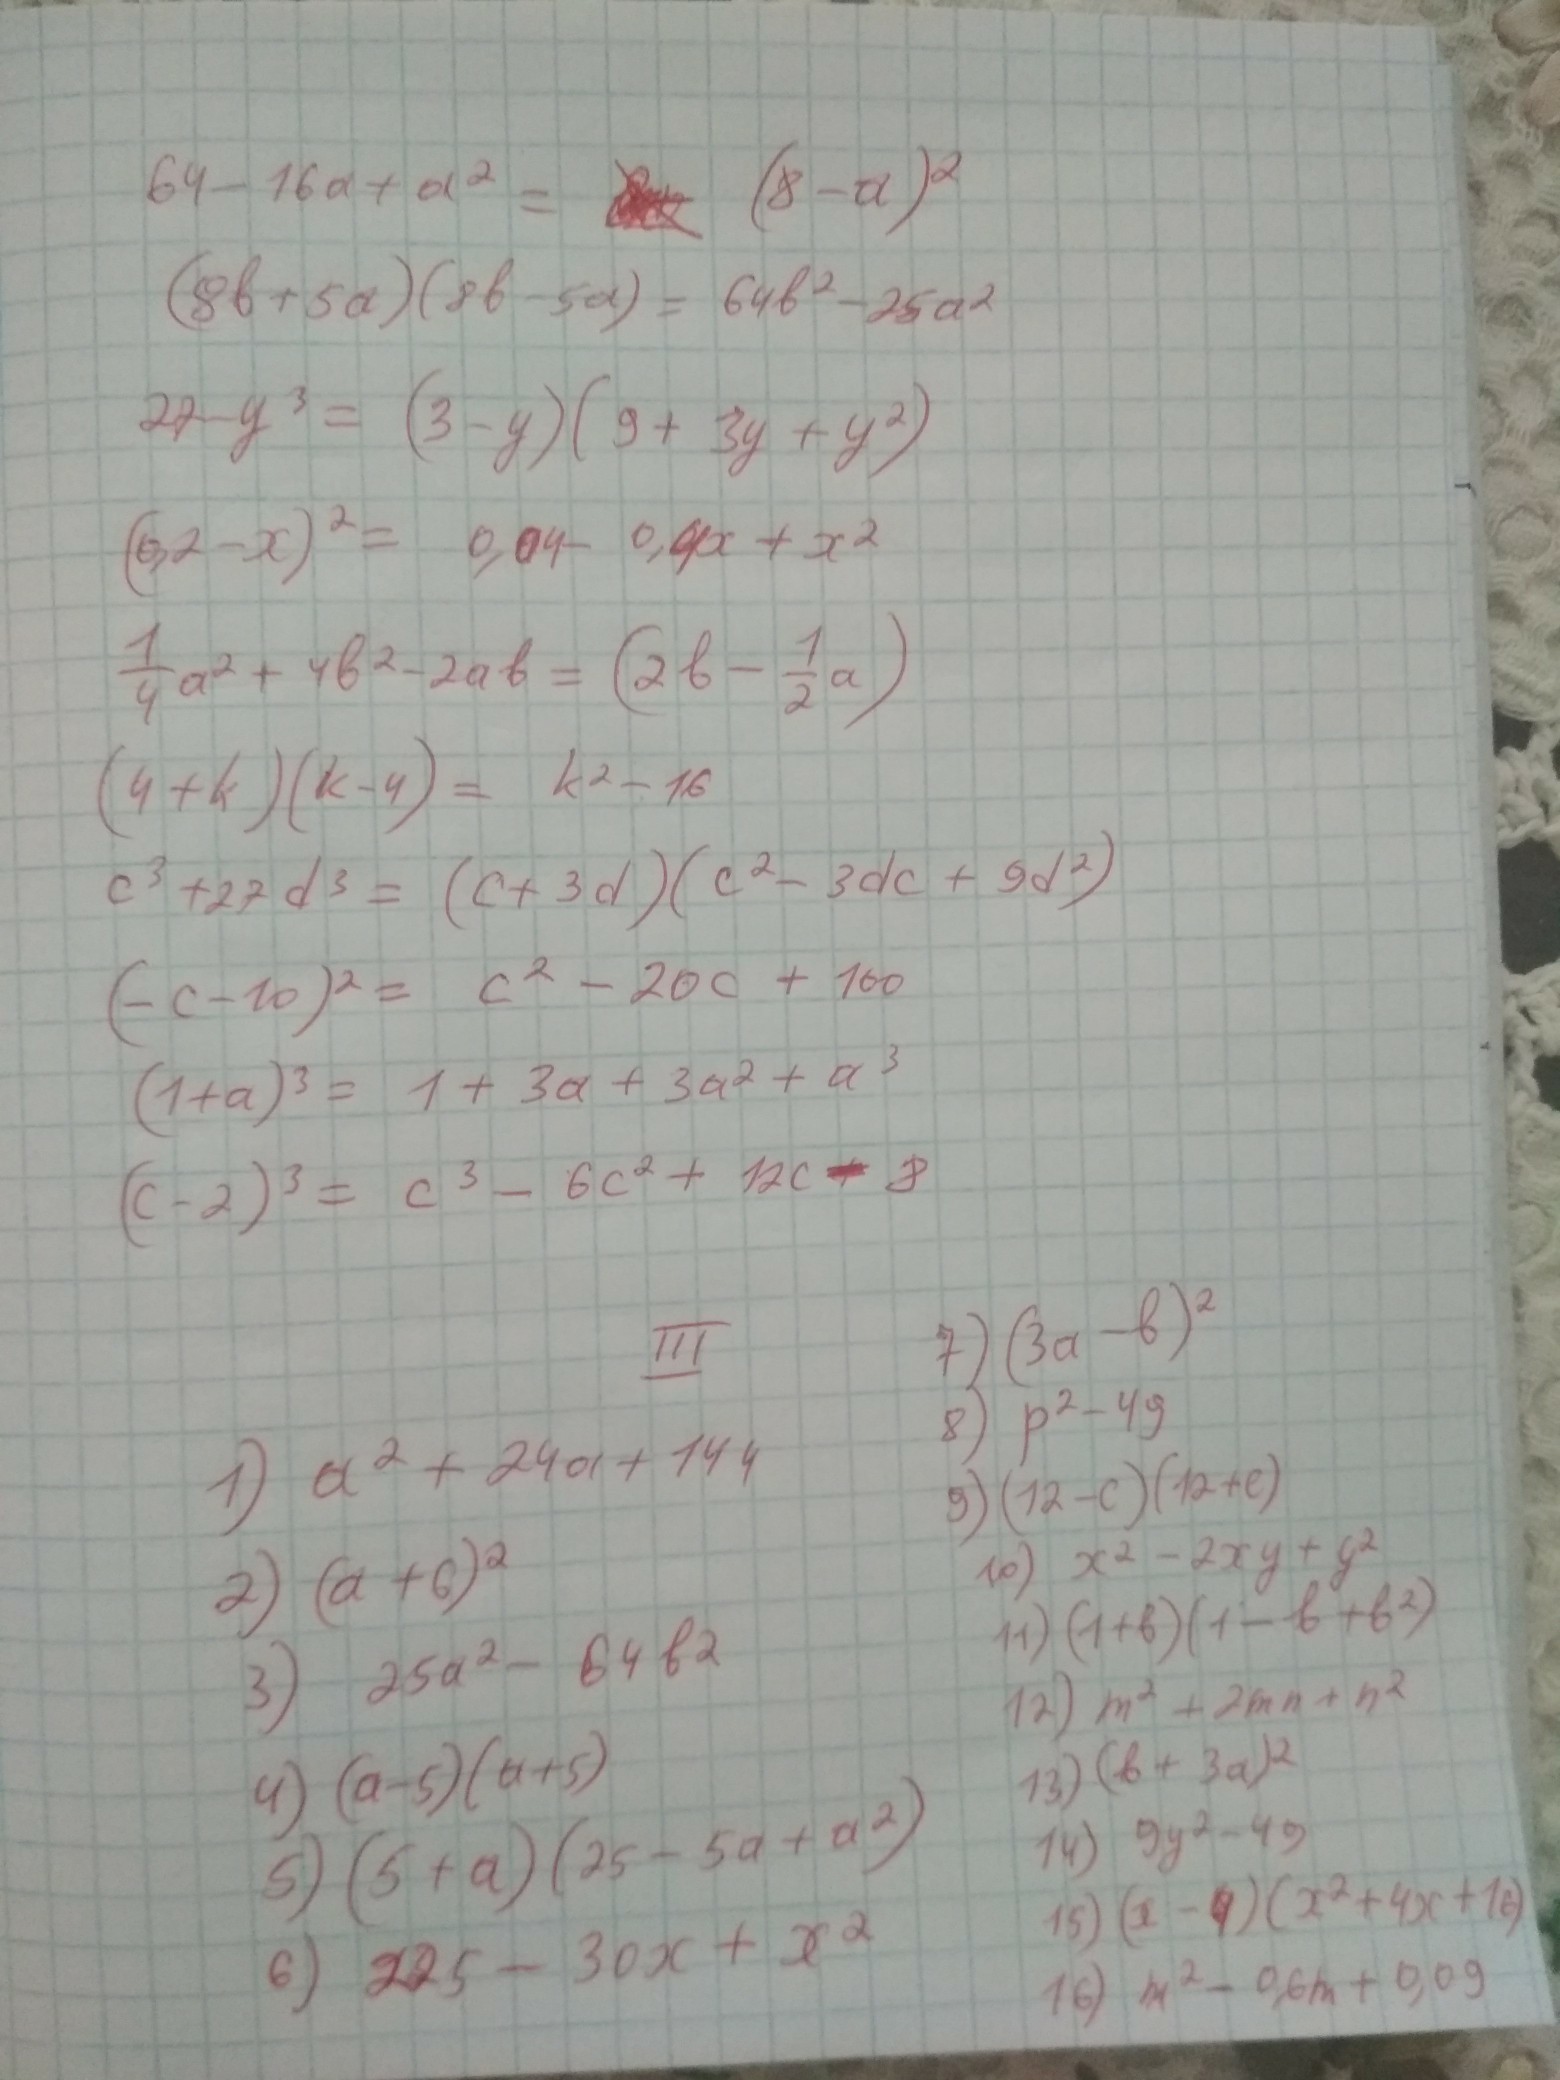 64 - 16a + a² = (8 - a)²
(8b + 5a)(8b - 5a) = 64b² - 25a²
27 - y³ = (3 - y)(9 + 3y + y²)
(0,2 - x)² = 0,04 - 0,4x + x²
1/4 a² + 4b² - 2ab = (2b - 1/2 a)
(4 + k)(k - 4) = k² - 16
c³ + 27d³ = (c + 3d)(c² - 3dc + 9d²)
(-c - 10)² = c² - 20c + 100
(1 + a)³ = 1 + 3a + 3a² + a³
(c - 2)³ = c³ - 6c² + 12c - 8
III
1) a² + 24a + 144
2) (a + 6)²
3) 25a² - 64b2
4) (a - 5)(a + 5)
5) (5 + a)(25 - 5a + a²)
6) 225 - 30x + x²
7) (3a - b)²
8) p² - 49
9) (12 - c)(12 + c)
10) x² - 2xy + y²
11) (1 + b)(1 - b + b²)
12) m² + 2mn + n²
13) (b + 3a)²
14) 9y² - 49
15) (x - 4)(x² + 4x + 16)
16) m² - 0,6m + 0,09